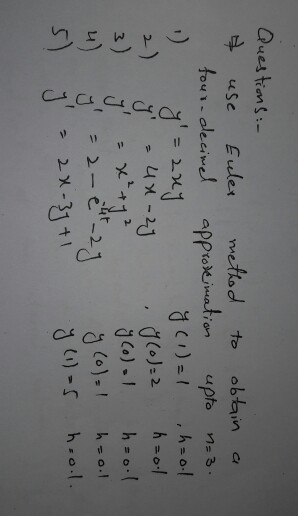 Questions:-
# use Euler method to obtain a
four-decimel approximation upto n=3.
1) y' = 2xy y(1)=1 , h=0.1
2) y' = 4x-2y , y(0)=2 h=0.1
3) y' = x²+y² y(0)=1 h=0.1
4) y' = 2-e⁻⁴ᵗ-2y y(0)=1 h=0.1
5) y' = 2x-3y+1 y(1)=5 h=0.1.